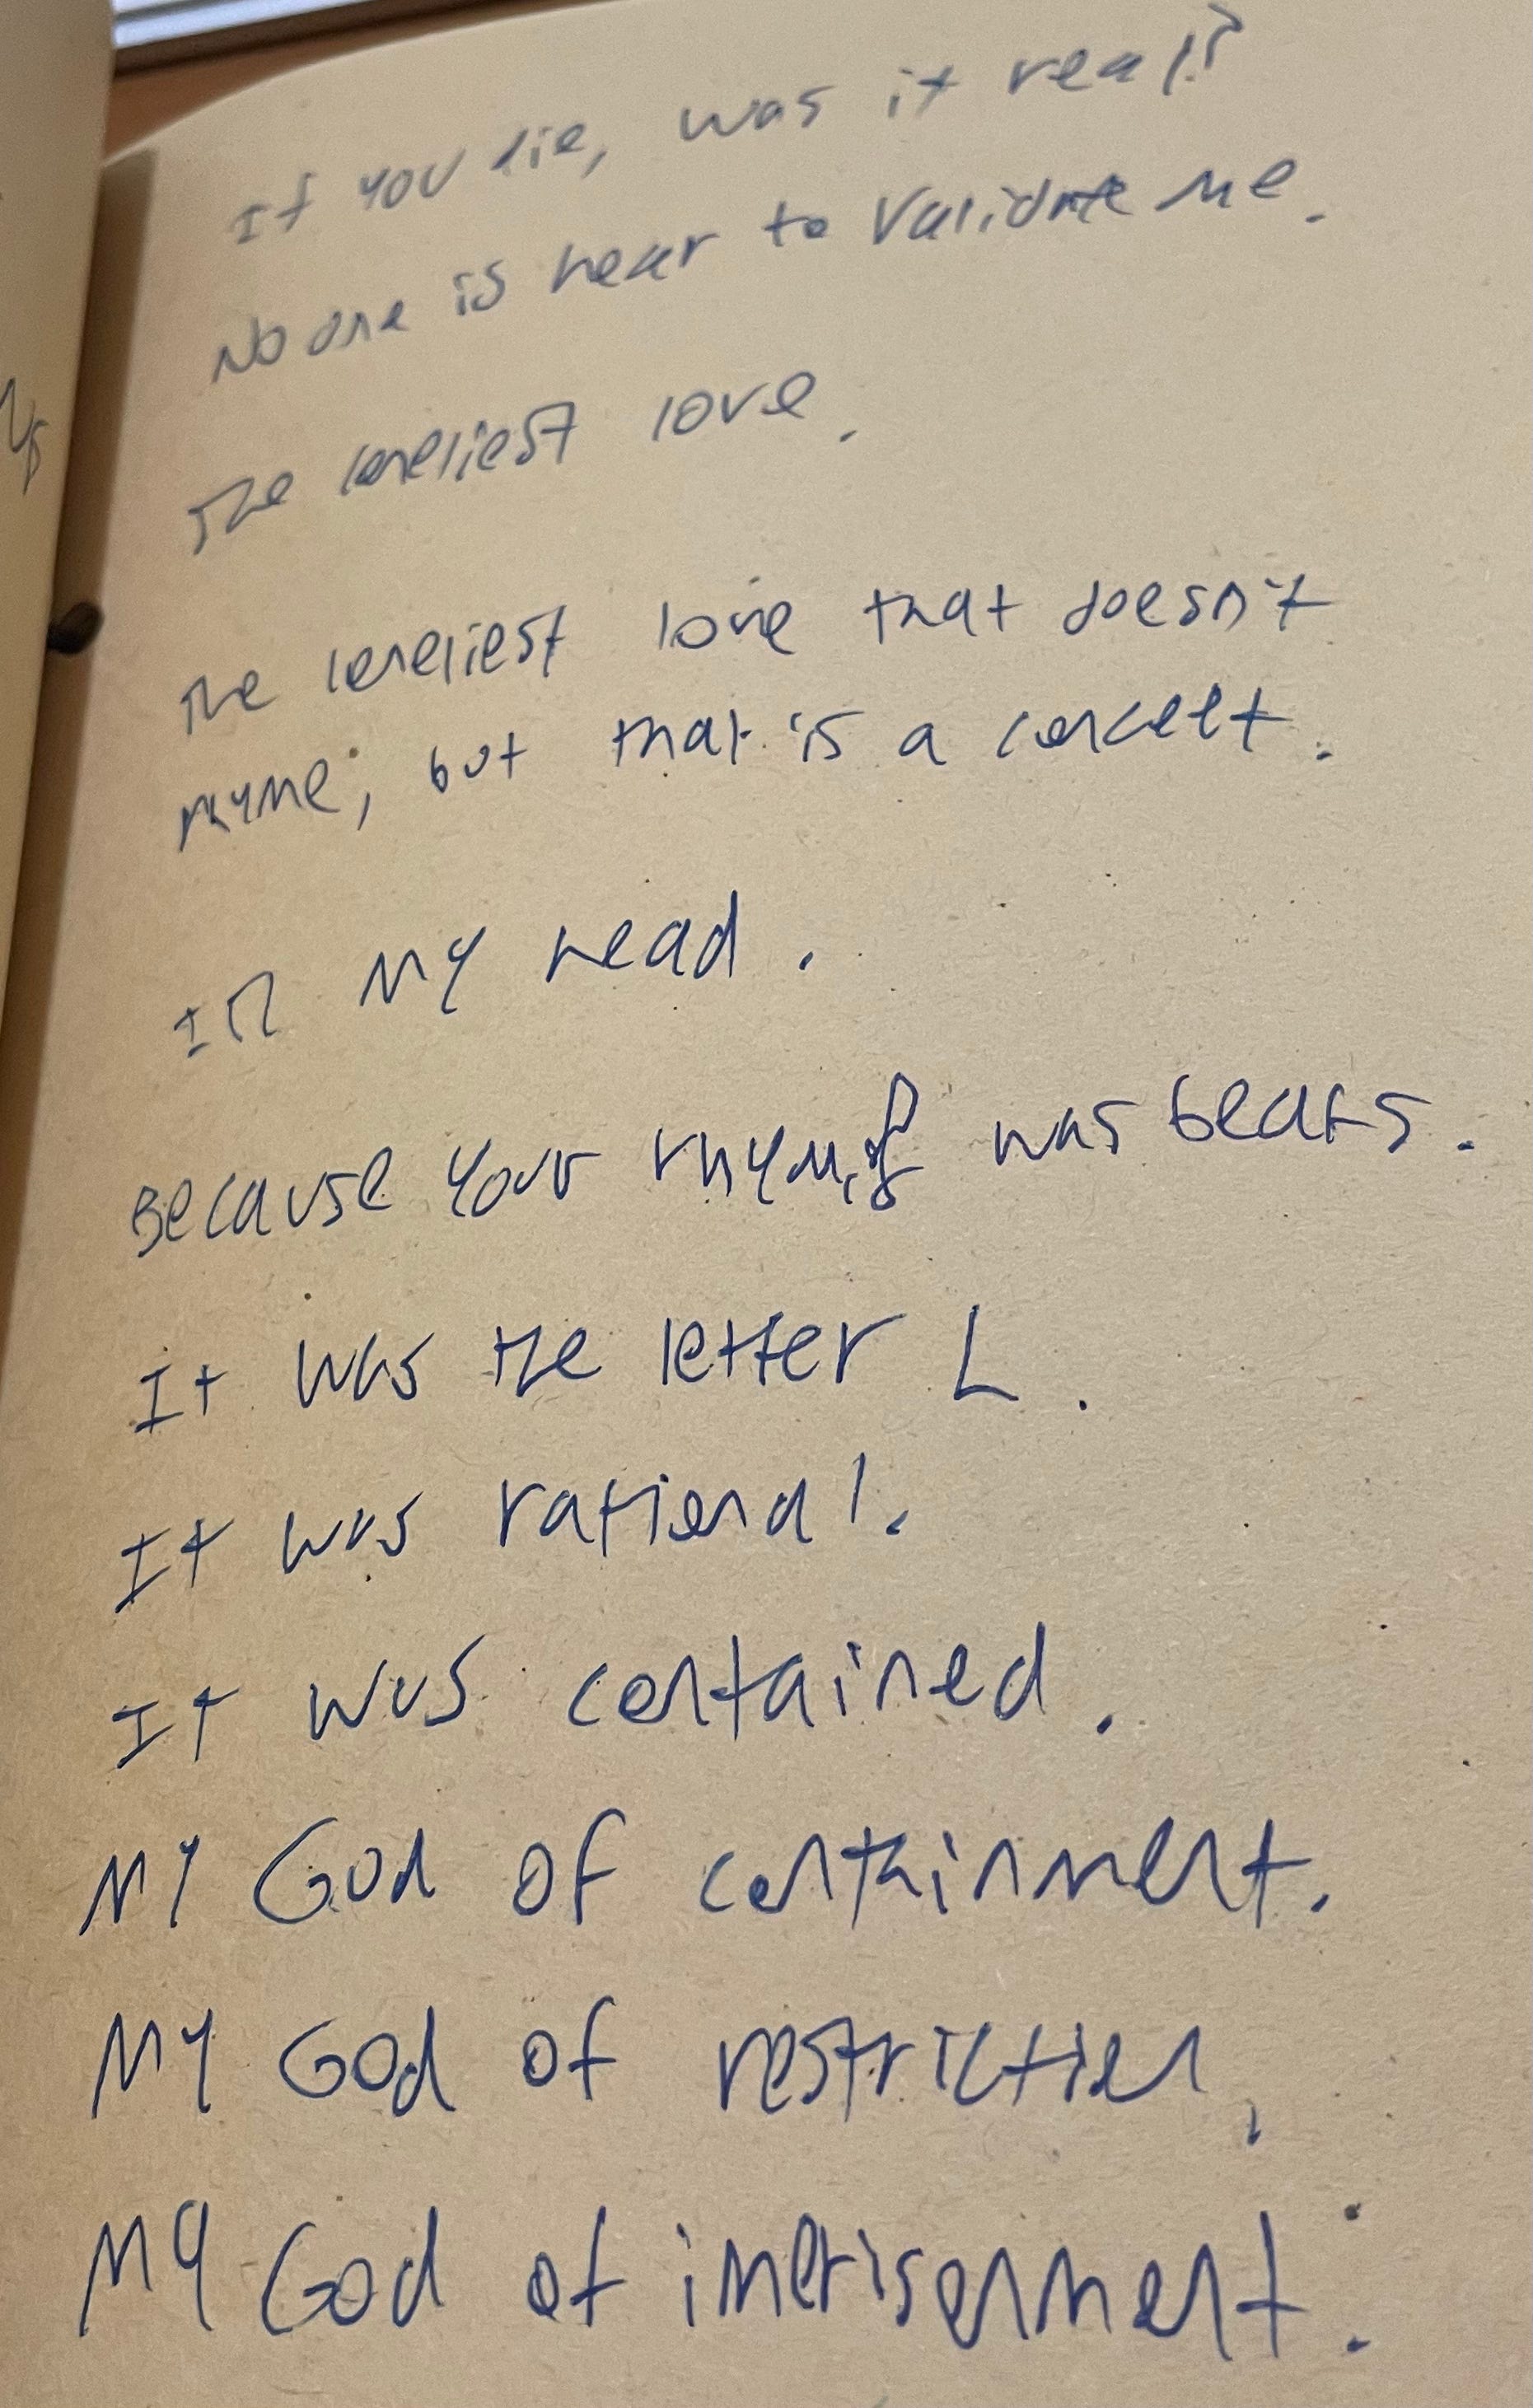 If you die, was it real?
No one is hear to validate me.
The loneliest love.
The loneliest love that doesn't
rhyme; but that is a concept.
In my head.
Because your rhyming was beats.
It was the letter L.
It was rational.
It was contained.
My God of containment.
My God of restriction,
My God of imprisonment.